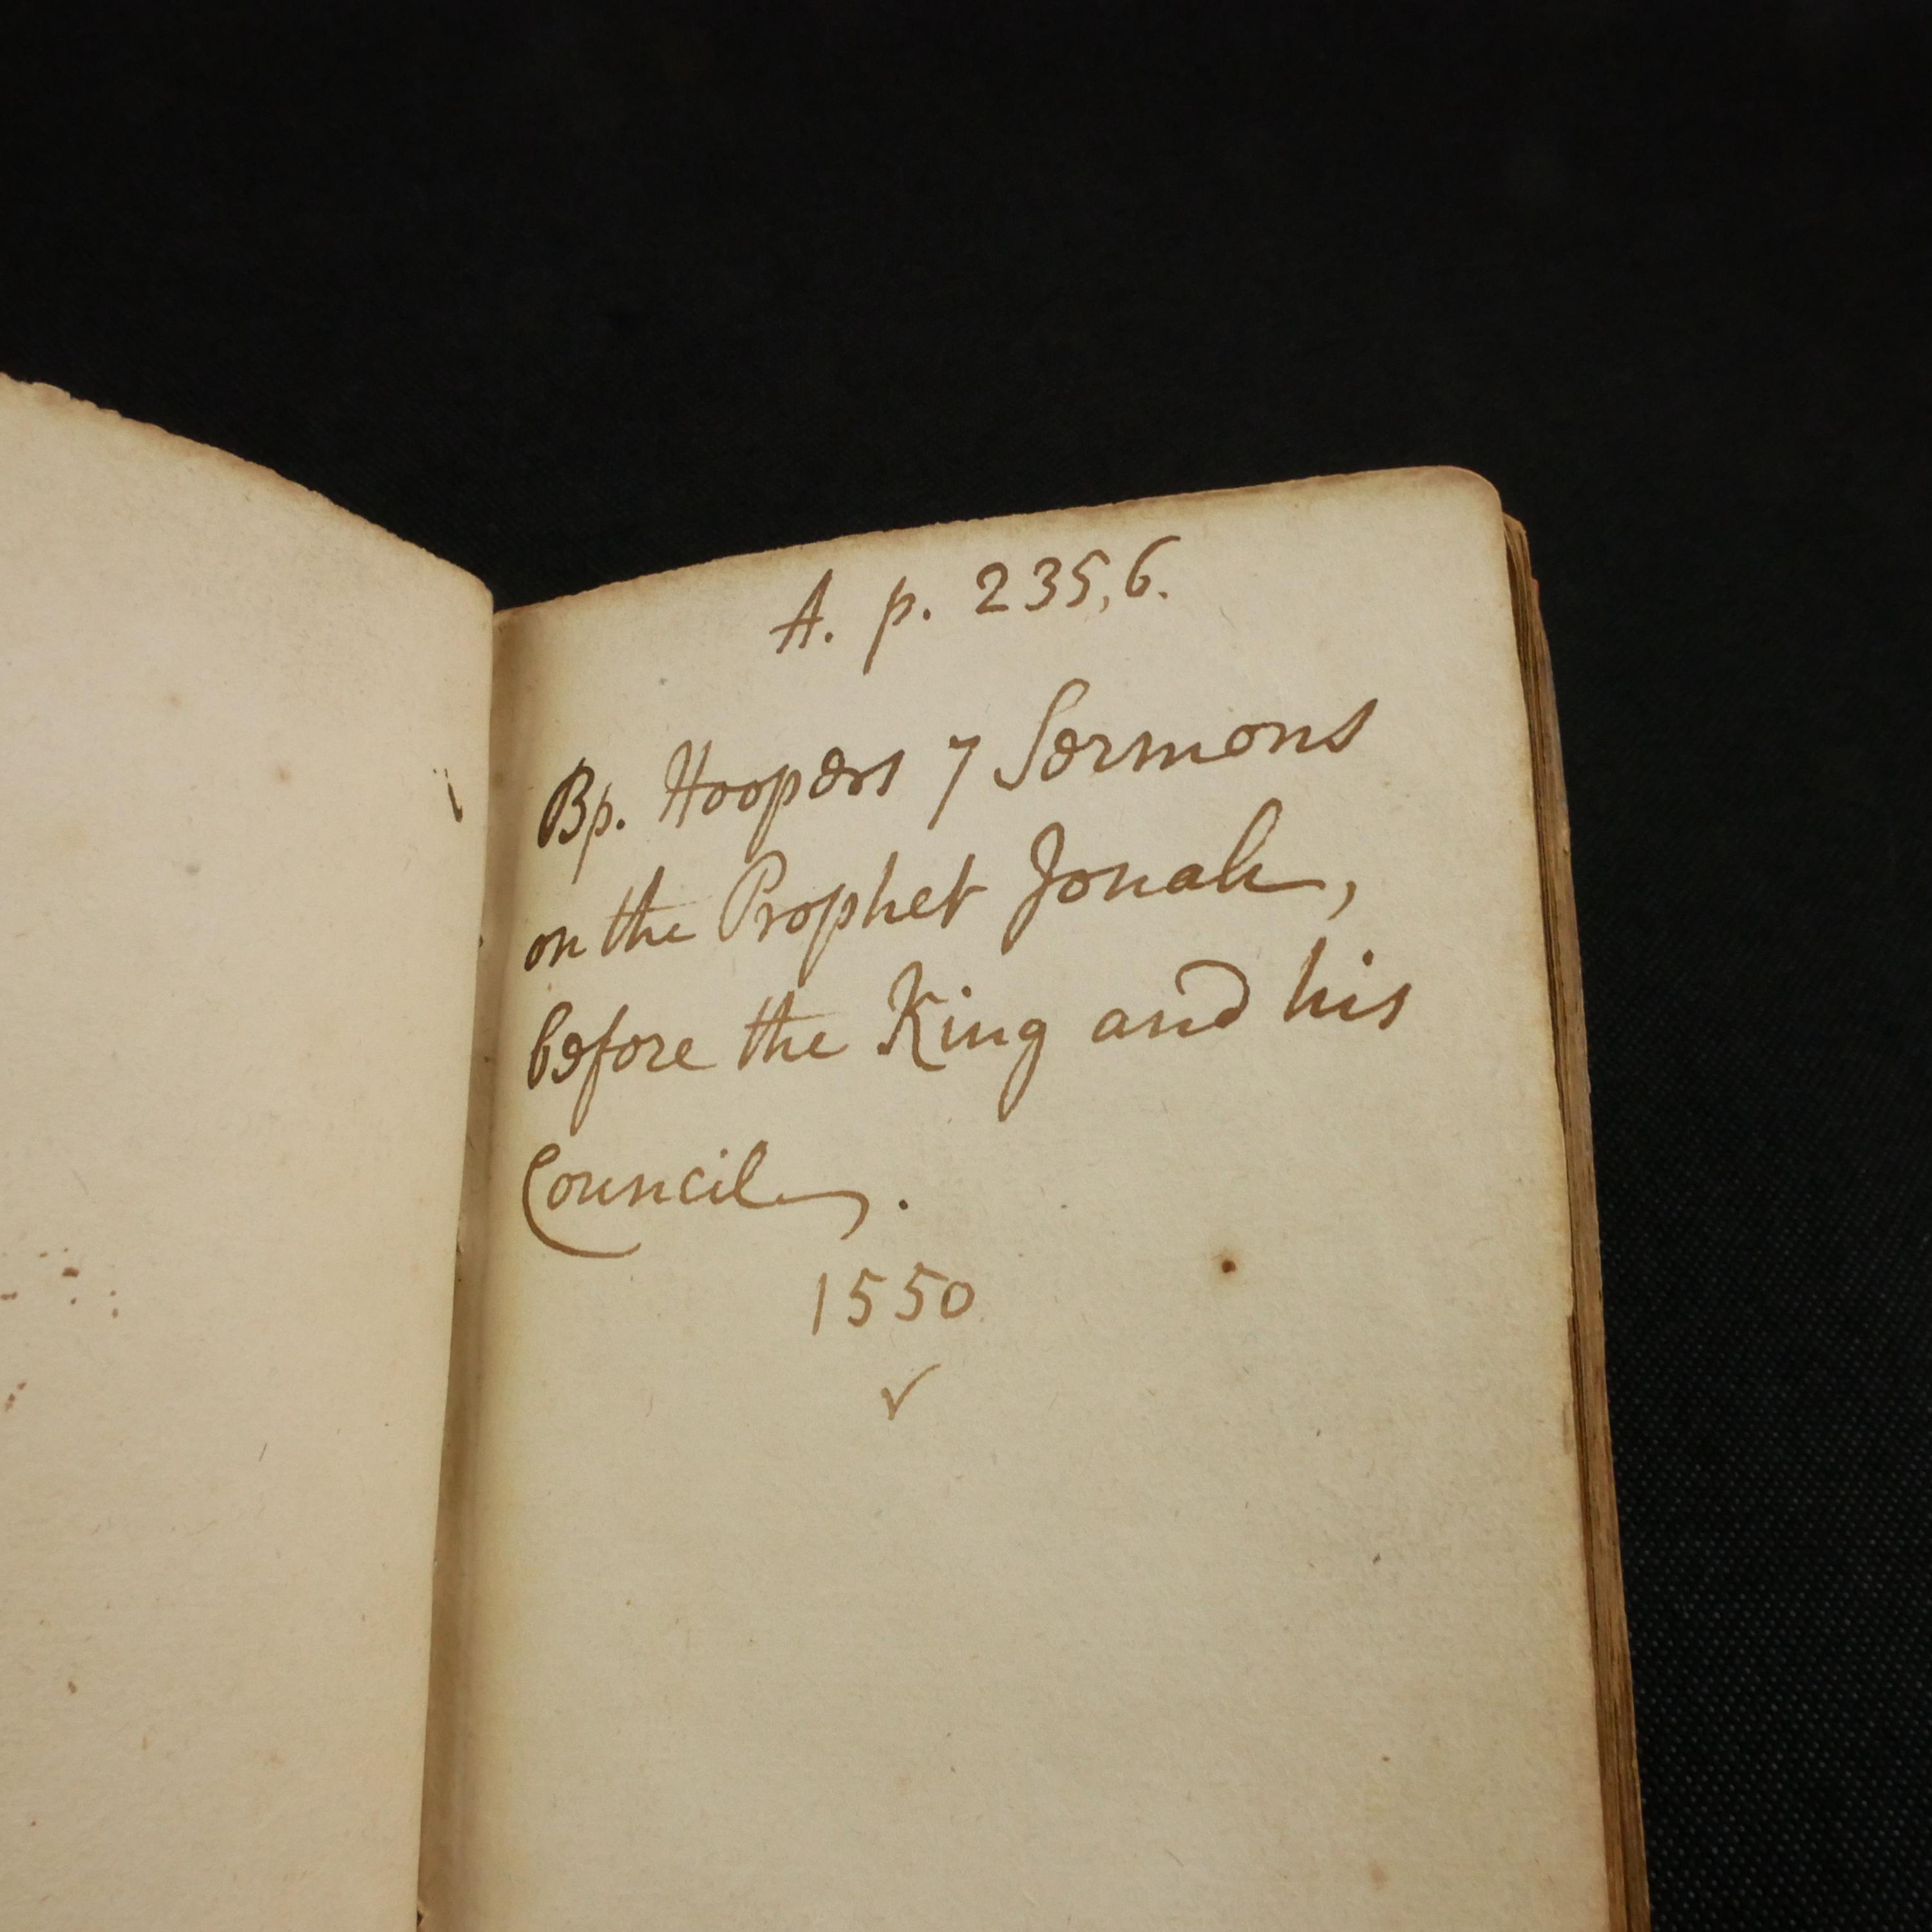 A. p. 235,6.
Bp. Hoopers 7 Sermons
on the Prophet Jonah,
before the King and his
Council.
1550